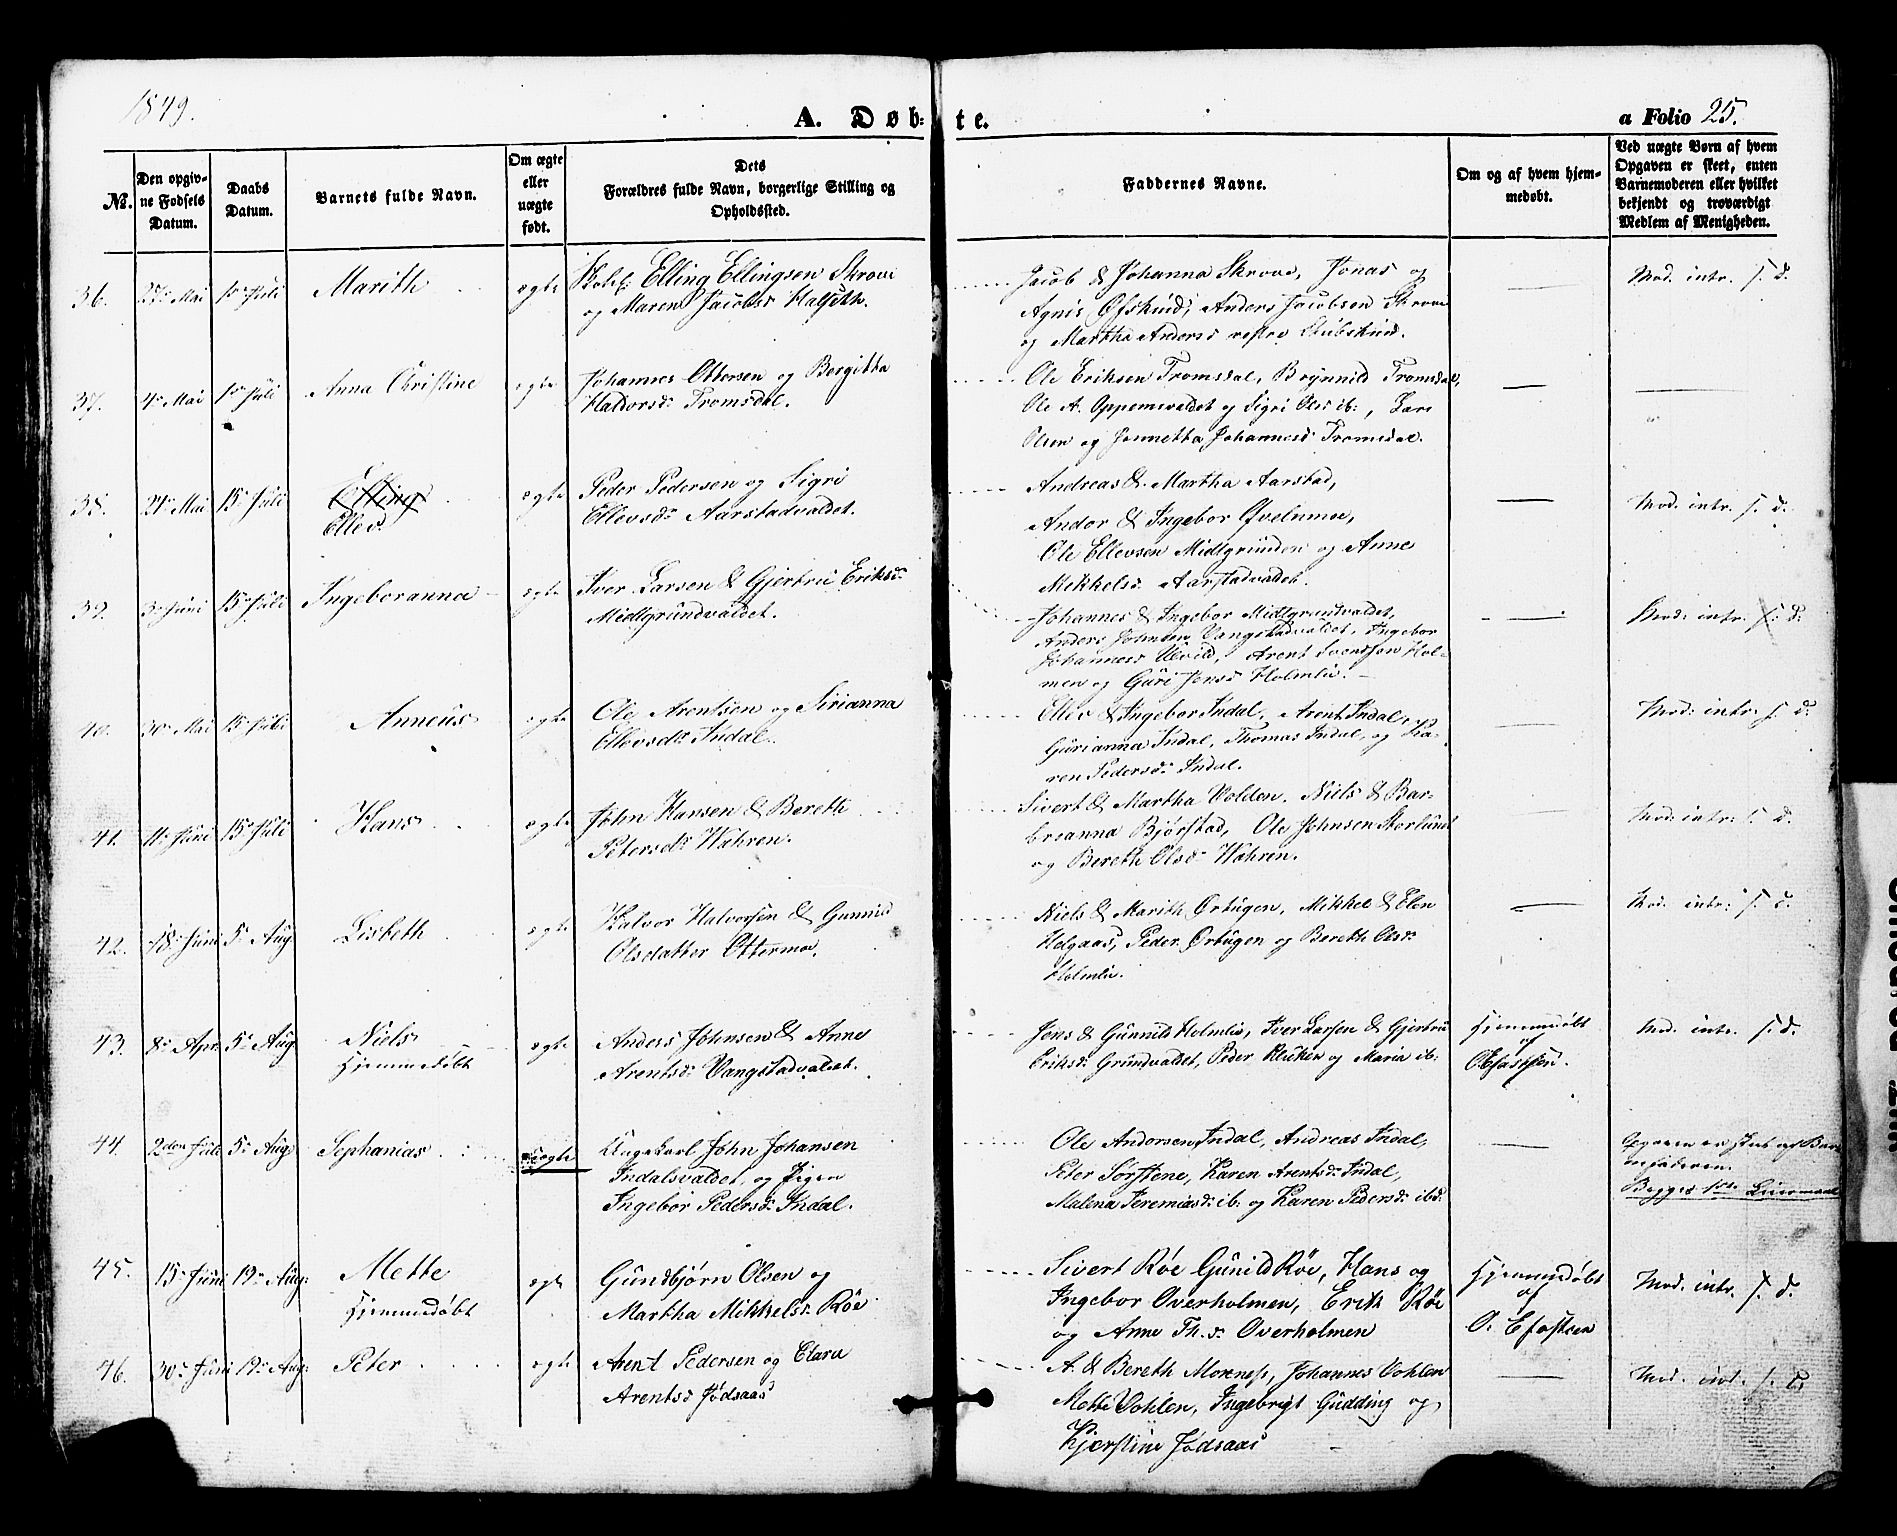 1849.
A. Døbte.
a Folio 25.
No.
Den opgiv-
ne Fødsels
Datum.
Daabs
Datum.
Barnets fulde Navn.
Om ægte
eller
uægte
født.
Dets
Forældres fulde Navn, borgerlige Stilling og
Opholdssted.
Faddernes Navne.
Om og af hvem hjem-
medøbt.
Ved uægte Børn af hvem
Opgaven er skeet, enten
Barnemoderen eller hvilket
bekjendt og troværdigt
Medlem af Menigheden.
36. 27de Mai 1ste Juli Marith ægte Elling Ellingsen Skrove
og Maren Jacobsd. Halseth.
Jacob & Johanna Skrove, Jonas og
Agnis Øfskind; Anders Jacobsen Skrove
og Martha Andersd
Mod. intr. s. d.
37. 4de Mai 1ste Juli Anna Christine ægte Johannes Ottersen og Bergitha
Haldorsd: Tromsdal.
Ole Eriksen Tromsdal, Brynnild Tromsdal,
Ole A. Oppemsvaldet og Sigri Olsd ib:, Lars
Olsen og Jonnetta Johannesd: Tromsdal.
38. 21de Mai 15de Juli Elling
Ellev. ægte Peder Pedersen og Sigri
Ellevsd: Aarstadvaldet.
Andreas & Martha Aarstad,
Andor & Ingebor Qvelumn,
Ole Ellevsen Midlgrunden og Anne
Mekkelsd. Aarstadvaldet.
Mod. intr. s. d.
39. 3de Juni 15de Juli Ingeboranna ægte Iver Larsen & Gjertru Eriksd:
Midlgrundvaldet.
Johannes & Ingebor Midlgrundvaldet,
Anders Johnsen Vangstadvaldet, Ingebor
Johannesd Ulvild, Arent Svendsen Hol-
men og Guri Jensd Holmliv.
Mod: intr. s: d:
40. 30te Mai 15de Juli Anneus ægte Ole Arentsen og Sirianna
Ellevsd: Indal.
Ellev & Ingebor Indal, Arent Indal,
Gurianna Indal, Thomas Indal, og Ka-
ren Pedersd: Indal.
Mod: intr: s. d.
41. 11te Juni 15de Juli Hans ægte John Hansen & Bereth
Petersd: Wahren.
Sivert & Martha Volden, Niels & Bar-
breanna Bjørstad, Ole Johnsen Storlund
og Bereth Olsd: Wahren.
Mod: intr: s. d.
42. 18de Juni 5te Aug Lisbeth ægte Halvor Halvorsen & Gunnild
Olsdatter Ottermoe.
Niels & Marith Ørtugen, Mikkel & Elen
Helgaas, Peder Ørtugen og Bereth Olsd:
Holmliv.
Mod. intr: s. d.
43. 8de Apr. 5te Aug Niels
Hjemmedøbt ægte Anders Johnsen & Anne
Arentsd: Vangstadvaldet.
Jens & Gunnild Holmliv, Iver Larsen & Gjertru
Eriksd: Grundvaldet, Peder og Maria ib:
Hjemmedøbt
af
Mod. intr. s. d.
44. 2den Juli 5te Aug Sephanias uægte Ungekarl John Johansen
Indalsvaldet, og Pigen
Ingebor Pedersd: Indal.
Ole Andersen Indal, Andreas Indal,
Peter Sørstene, Karen Arentsd: Indal,
Malena Jeremiasd: ib: og Karen Pedersd: ibd.
Opgaven er skeet af Bar-
nefaderen.
Begges 1ste Leiermaal
45. 15de Juni 19de Aug: Mette
Hjemmedøbt ægte Gundbjørn Olsen og
Martha Mikkelsd: Røe.
Sivert Røe Gunild Røe, Hans og
Ingebor Overholmen, Erik Røe
og Anne Th.d: Overholmen
Hjemmedøbt
af
Mod. intr. s. d.
46. 30te Juni 19de Aug: Peter ægte Arent Pedersen og Elara
Arentsd Jødsaas
A. & Bereth Morenes, Johannes Vohlen
Mette Vohlen, Ingebrigt Gudding og
Kjerstine Jødsaas
Mod. intr. s. d.